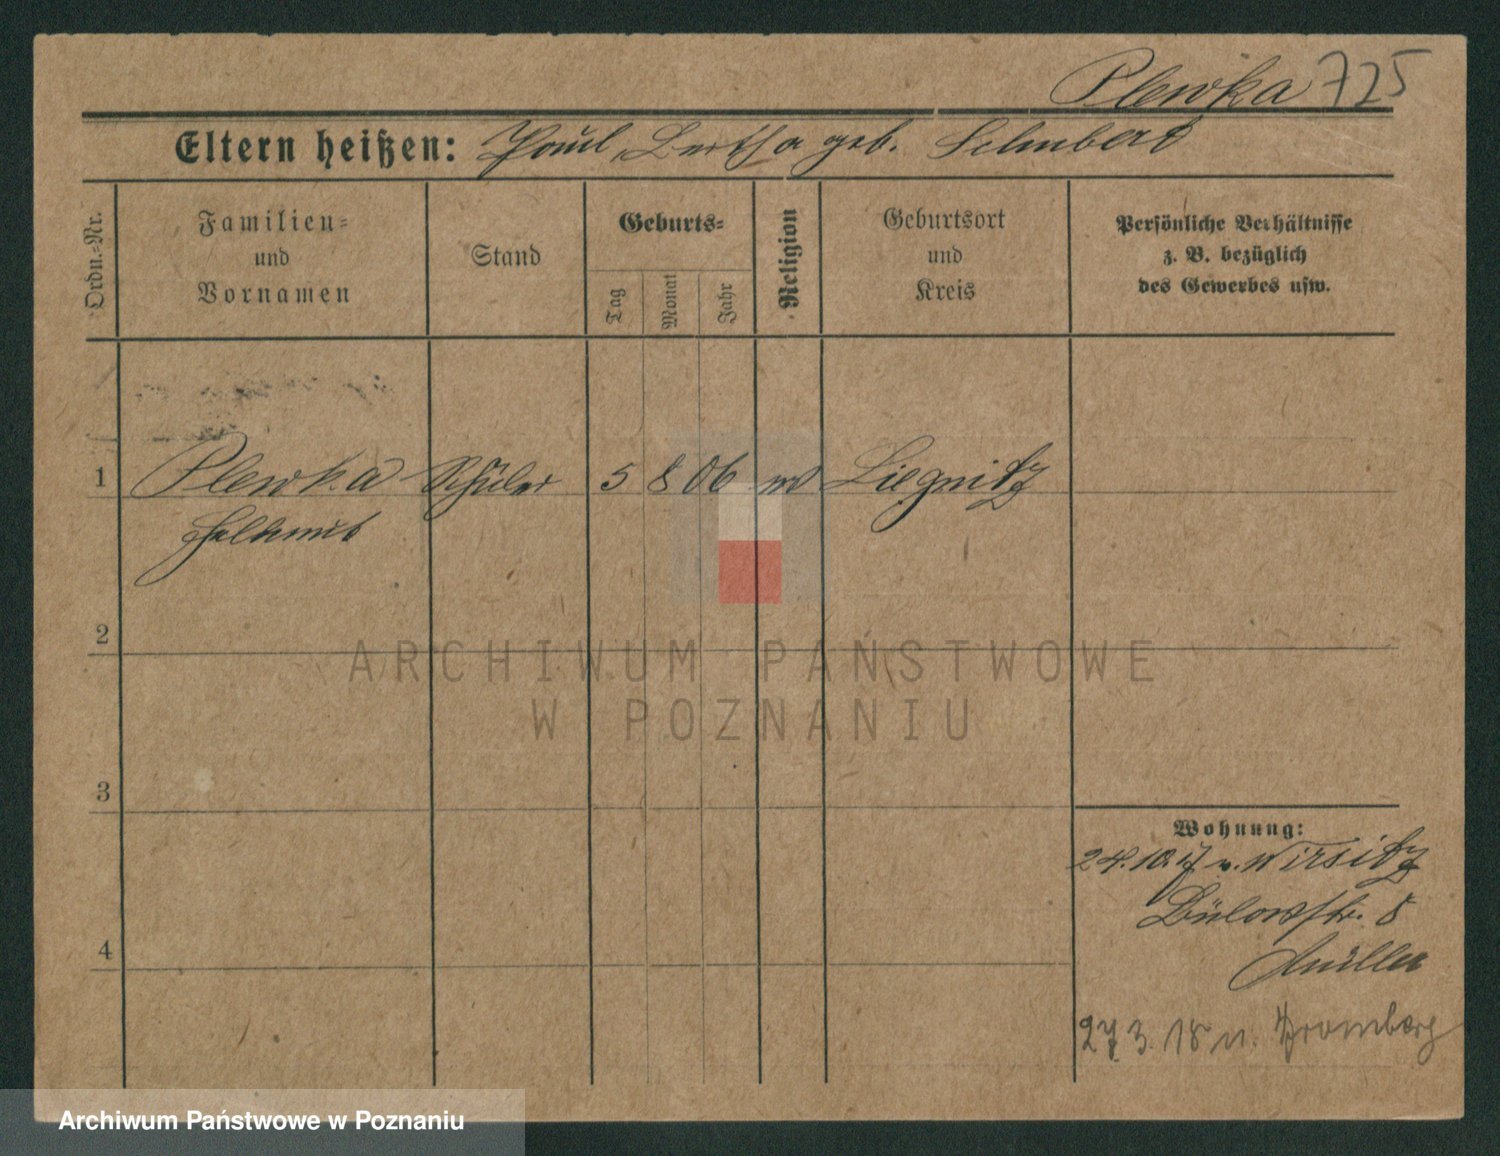 Plewka 725
Eltern heißen: Paul, Bertha geb. Schubert
Ordn.-Nr.
Familien=
und
Vornamen
Stand
Geburts=
Tag
Monat
Jahr
Religion
Geburtsort
und
Kreis
Persönliche Verhältnisse
z. B. bezüglich
des Gewerbes usw.
1 Plewka Schüler 5 8 06 Liegnitz
Helmut
2
3
4
Wohnung:
24.10.17 v. Wirsitz
Bülowstr. 8
Müller
27.3.18 n. Bromberg
ARCHIWUM PAŃSTWOWE
W POZNANIU
Archiwum Państwowe w Poznaniu